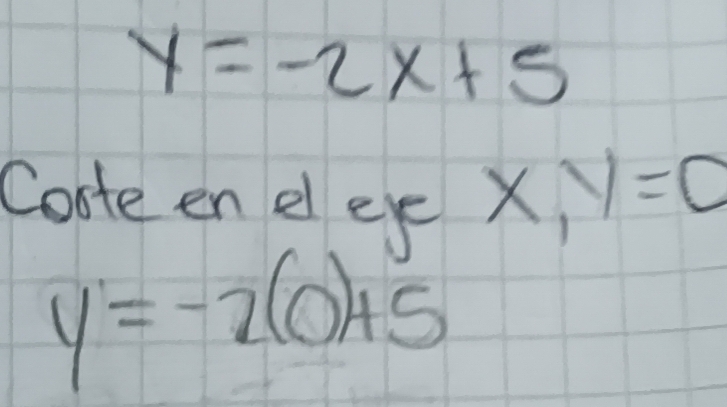 y = -2x + 5
Corte en el eje X, Y = 0
y = -2(0) + 5